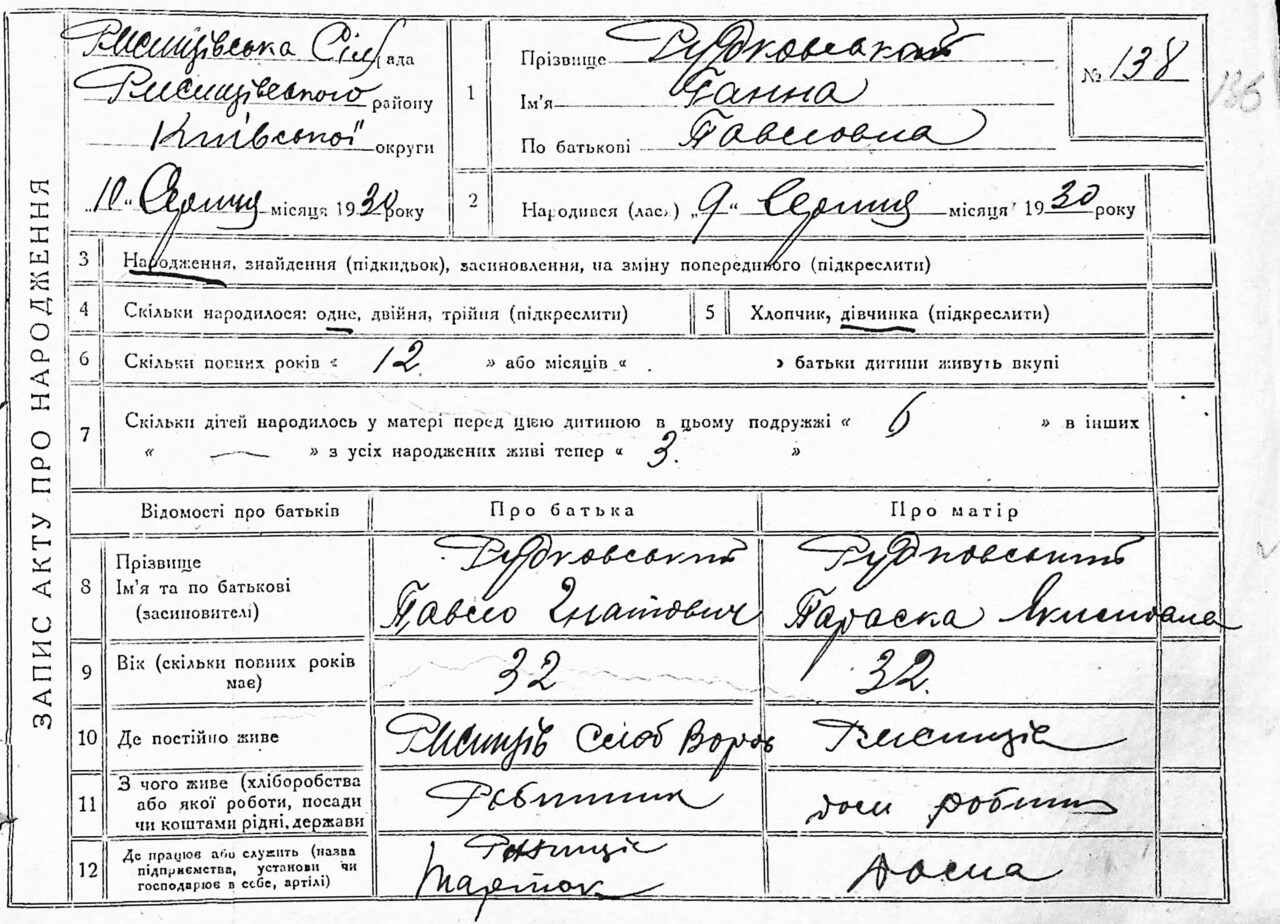 ЗАПИС АКТУ ПРО НАРОДЖЕННЯ
Ржищівська Сіль рада
Ржищівського району
Київської округи
„10" Серпня місяця 1930 року
1
Прізвище Рудковський
Ім'я Ганна
По батькові Павловна
№ 138
136
2 Народився (лась) „9" Серпня місяця 1930 року
3 Народження, знайдення (підкидьок), засиновлення, на зміну попереднього (підкреслити)
4 Скільки народилося: одне, двійня, трійня (підкреслити)
5 Хлопчик, дівчинка (підкреслити)
6 Скільки повних років « 12 » або місяців « » батьки дитини живуть вкупі
7 Скільки дітей народилось у матері перед цією дитиною в цьому подружжі « 6 » в інших
« — » з усіх народжених живі тепер « 3. »
Відомості про батьків Про батька Про матір
8 Прізвище
Ім'я та по батькові
(засиновителі)
Рудковський
Павло Гнатович
Рудковський
Параска Якимовна
9 Вік (скільки повних років
має)
32
32.
10 Де постійно живе
Ржищів
Ржищів
11 З чого живе (хліборобства
або якої роботи, посади
чи коштами рідні, держави
Робітник
дом робітн
12 Де працює або служить (назва
підприємства, установи чи
господарює в себе, артілі)
Ржищів
дома